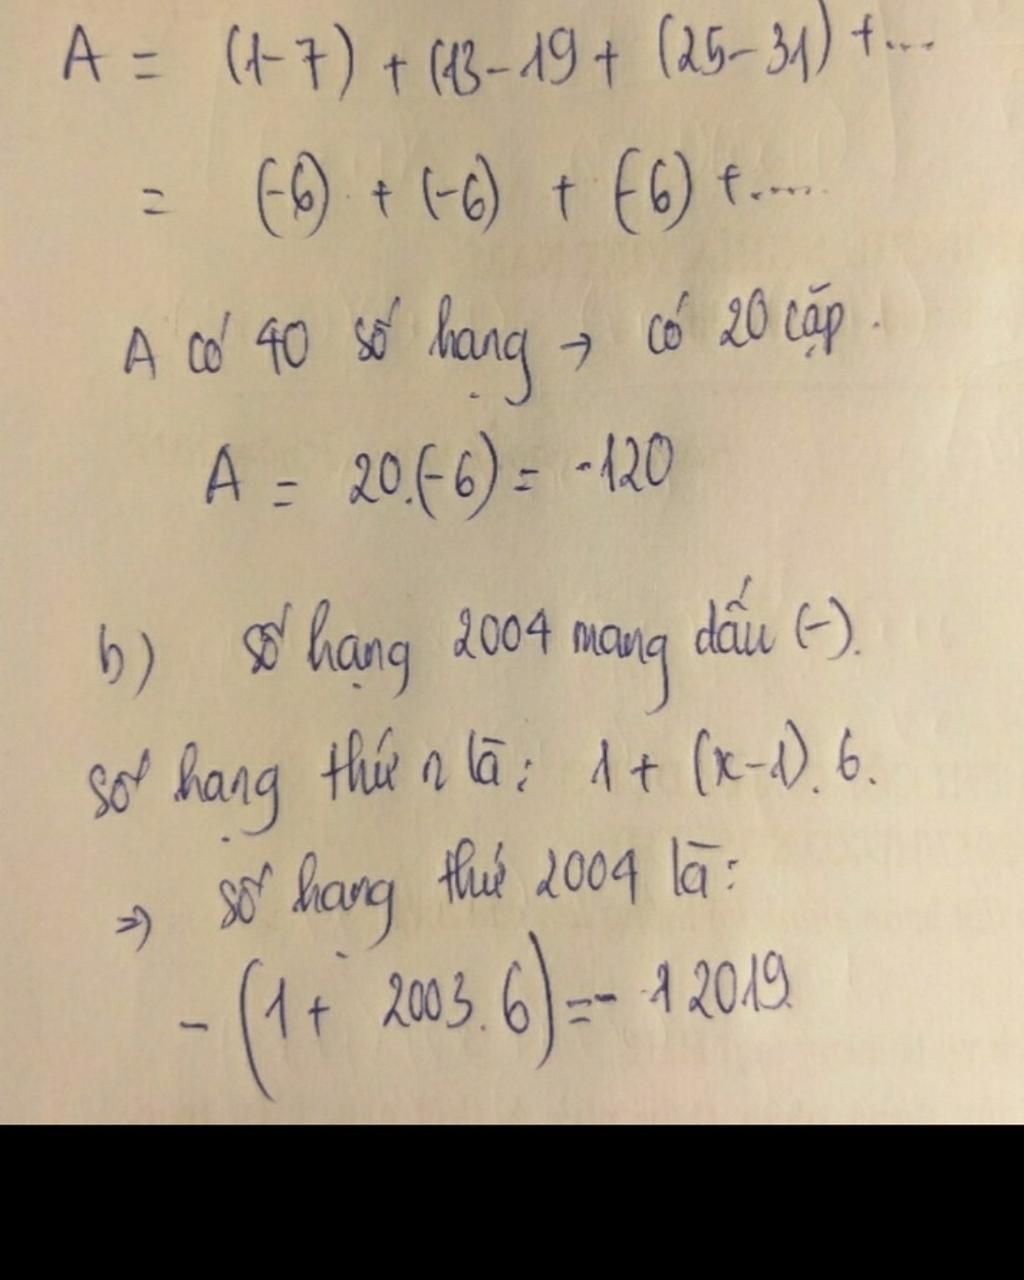 A = (1-7) + (13-19 + (25-31) + ...
= (-6) + (-6) + (-6) + .....
A có 40 số hạng → có 20 cặp.
A = 20.(-6) = -120
b) số hạng 2004 mang dấu (-).
số hạng thứ n là: 1 + (x-1). 6.
=> số hạng thứ 2004 là:
- (1 + 2003. 6) = - 12019